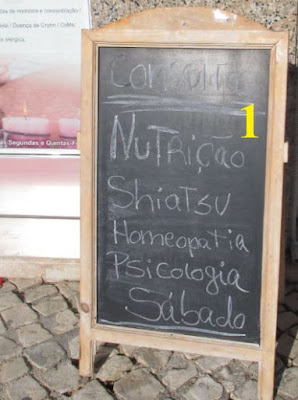 de memória e concentração /
/ Doença de Crohn / Celíac
alérgica.
Segundas e Quintas-F
Consulta
1
Nutrição
Shiatsu
Homeopatia
Psicologia
Sábado